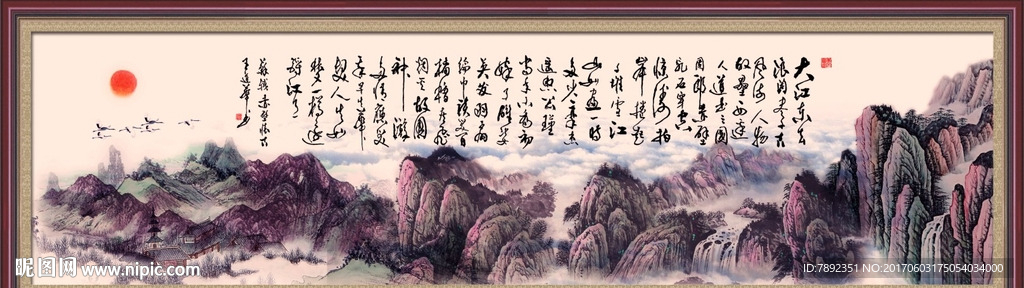 大江东去
浪淘尽千古
风流人物
故垒西边
人道是三国
周郎赤壁
乱石穿空
惊涛拍
岸捲起
千堆雪江
山如画一时
多少豪杰
遥想公瑾
当年小乔初
嫁了雄姿
英发羽扇
纶巾谈笑间
樯橹灰飞
烟灭故国
神游
多情应笑
我早生华
发人生如
梦一樽还
酹江月
苏轼赤壁怀古
昵图网 www.nipic.com
ID:7892351 NO:20170603175054034000